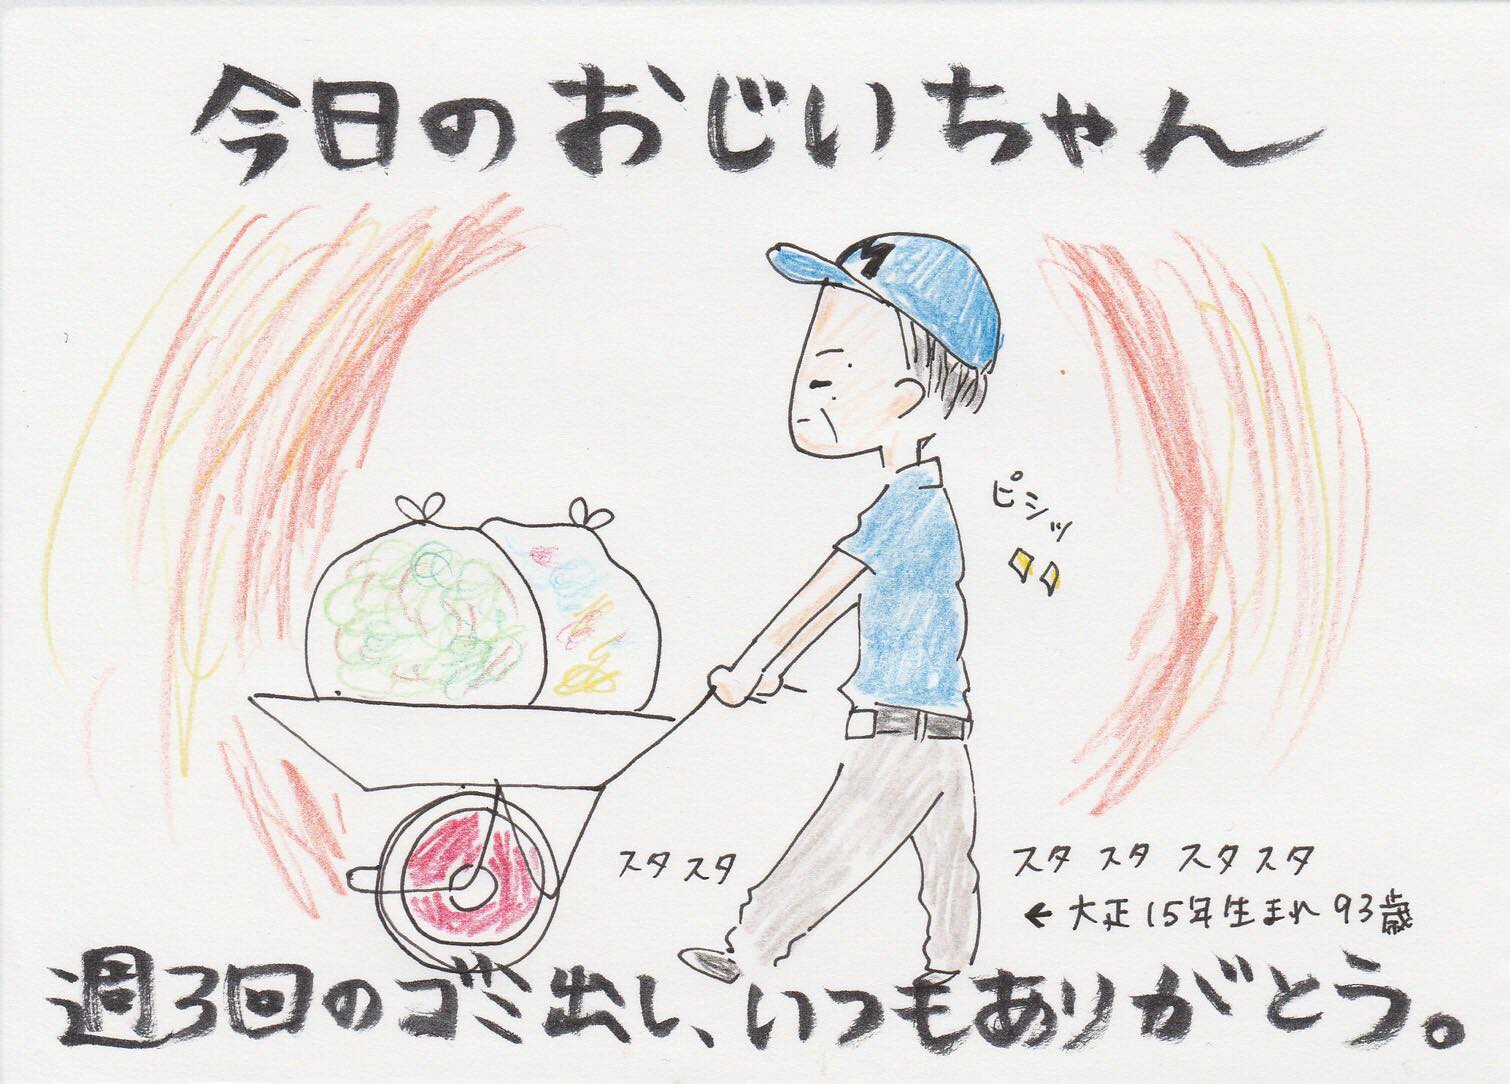 今日のおじいちゃん
M
ピシッ
スタスタ
スタスタスタスタ
←大正15年生まれ93歳
週3回のゴミ出し、いつもありがとう。